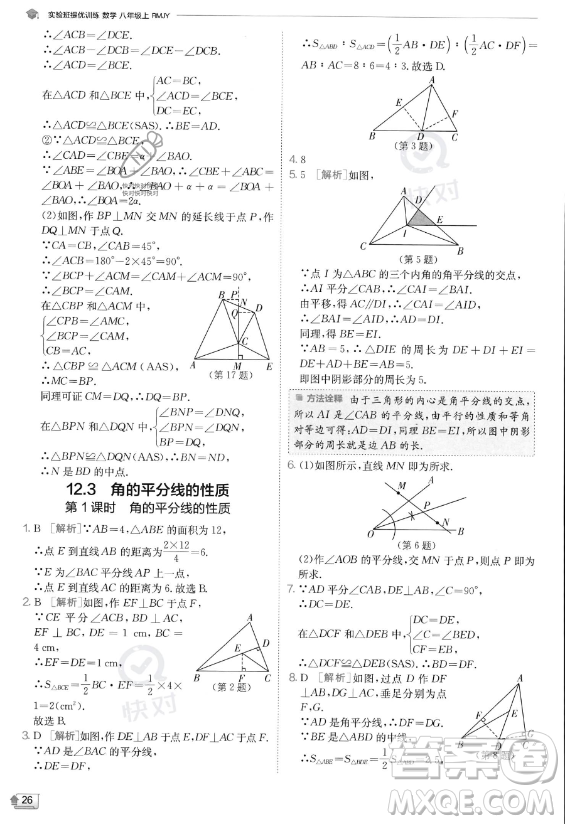 实验班提优训练 数学 八年级上 RMJY
∴∠ACB=∠DCE.
∴∠ACD=∠BCE.
在△ACD 和△BCE 中,
AC=BC,
∠ACD=∠BCE,
DC=EC,
∴△ACD≌△BCE(SAS).
②∵△ACD≌△BCE,
∴∠CAD=∠CBE=α=∠BAO.
∵∠ABE=∠BOA+∠BAO,
∴∠CBE+α=∠BOA+∠BAO.
∴∠BAO+α=α+∠BOA.
∴∠BOA=2α.
(2)如图,作 BP⊥MN 交 MN 的延长线于点 P,作
DQ⊥MN 于点 Q.
∵CA=CB,∠CAB=45°,
∴∠ACB=180°-2×45°=90°.
∵∠BCP+∠ACM=∠CAM+∠ACM=90°,
∴∠BCP=∠CAM.
在△CBP 和△ACM 中,
∠CPB=∠AMC,
∠BCP=∠CAM,
CB=AC,
∴△CBP≌△ACM(AAS),
∴MC=BP.
(第 17 题)
同理可证 CM=DQ,∴DQ=BP.
在△BPN 和△DQN 中,
∠BNP=∠DNQ,
∠BPN=∠DQN,
BP=DQ,
∴△BPN≌△DQN(AAS),∴BN=ND.
∴N 是 BD 的中点.
12.3 角的平分线的性质
第 1 课时 角的平分线的性质
1. B [解析]∵AB=4,△ABE 的面积为 12,
∴点 E 到直线 AB 的距离为2×12/4=6.
∵E 为∠BAC 平分线 AP 上一点,
∴点 E 到直线 AC 的距离为 6.故选 B.
2. B [解析]如图,作 EF⊥BC 于点 F,
∵CE 平分∠ACB,BD⊥
AC,EF⊥BC,DE=1 cm,BC=
4 cm,
∴EF=DE=1 cm.
∴S△BCE=1/2BC·EF=1/2×4×
1=2(cm²).
故选 B.
(第 2 题)
3. D [解析]如图,作 DE⊥AB 于点 E,DF⊥AC 于点 F.
∵AD 是△ABC 的角平分线,
∴DE=DF,
26
∴S△ABD:S△ACD=(1/2AB·DE):(1/2AC·DF)=
AB:AC=8:6=4:3.故选 D.
(第 3 题)
4. 8
5. 5 [解析]如图,
(第 5 题)
∵点 I 为△ABC 的三个内角的角平分线的交点,
∴AI 平分∠CAB,∴∠CAI=∠BAI.
由平移,得 AC∥DI,∴∠CAI=∠AID.
∴∠BAI=∠AID,∴AD=DI.
同理,得 BE=EI.
∵AB=5,∴△DIE 的周长为 DE+DI+EI=
DE+AD+BE=AB=5.
即图中阴影部分的周长为 5.
方法诠释 由于三角形的内心是角平分线的交点,
所以 AI 是∠CAB 的平分线,由平行的性质和等角
对等边可得:AD=DI,同理 BE=EI,所以图中阴影
部分的周长就是边 AB 的长.
6. (1)如图所示,直线 MN 即为所求.
(第 6 题)
(2)作∠AOB 的平分线,与直线 MN 的交点 P 即为
所求.
7. ∵AD 平分∠CAB,DE⊥AB,∠C=90°,
∴DC=DE.
在△DCF 和△DEB 中,
DC=DE,
∠C=∠BED,
CF=EB,
∴△DCF≌△DEB(SAS),∴BD=DF.
8. D [解析]如图,过点 D 作 DF
⊥AB,DG⊥AC,垂足分别为点
F,G.